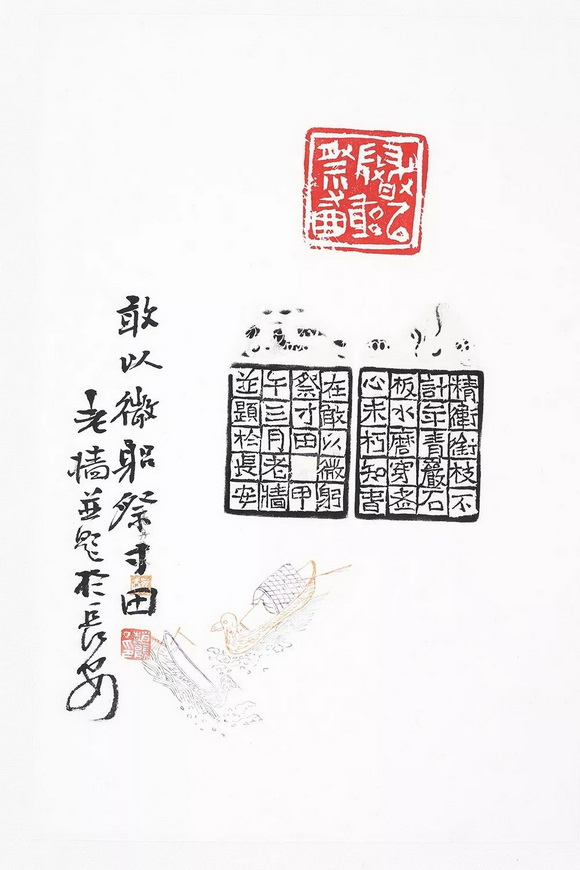 敢以
微躳
祭寸田
精衛銜枝不
計年青巖石
板水磨穿盡
心未朽知者
在敢以微躳
祭寸田 甲
午三月老牆
並題於長安
敢以微躳祭寸田
老牆並題於長安